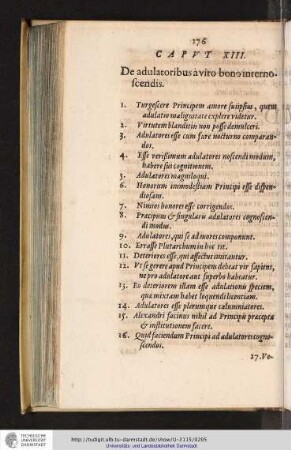 176
CAPVT XIII.
De adulatoribus à viro bono interno-
scendis.
1. Turgescere Principem amore sui ipsius, quem
adulator malignitate explere videtur.
2. Virtutem blanditiis non posse demulceri.
3. Adulatores esse cum fure nocturno comparan-
dos.
4. Esse verissimum adulatores noscendi modum,
habere sui cognitionem.
5. Adulatores magniloqui.
6. Honorum immodestiam Principi esse dispen-
diosam.
7. Nimios honores esse corrigendos.
8. Præcipuus & singularis adulatores cognoscen-
di modus.
9. Adulatores, qui se ad mores componunt.
10. Errasse Plutarchum in hoc
11. Deteriores esse, qui affectus imitantur.
12. Vt se gerere apud Principem debeat vir sapiens,
ne pro adulatore aut superbo habeatur.
13. Eo deteriorem illam esse adulationis speciem,
qua mixtam habet loquendi licentiam.
14. Adulatores esse plerumque calumniatores.
15. Alexandri facinus nihil ad Principis præcepta
& institutionem facere.
16. Quid faciendum Principi ad adulatores cogno-
scendos.
17. Vo-
TECHNISCHE
UNIVERSITÄT
DARMSTADT
http://tudigit.ulb.tu-darmstadt.de/show/U-2115/0205
Universitäts- und Landesbibliothek Darmstadt